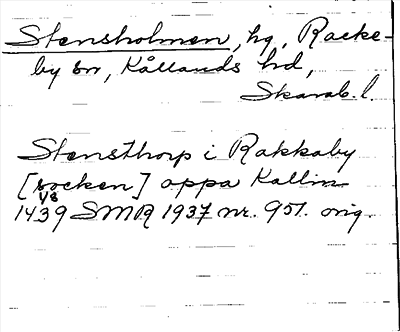 Stensholmen, hg, Racke-
by sn, Kållands hd,
Skarab. l.
Stensthorp i Rakkaby
[socken] appa Kallin
1439 1/8 SMR 1937 nr. 951. orig.